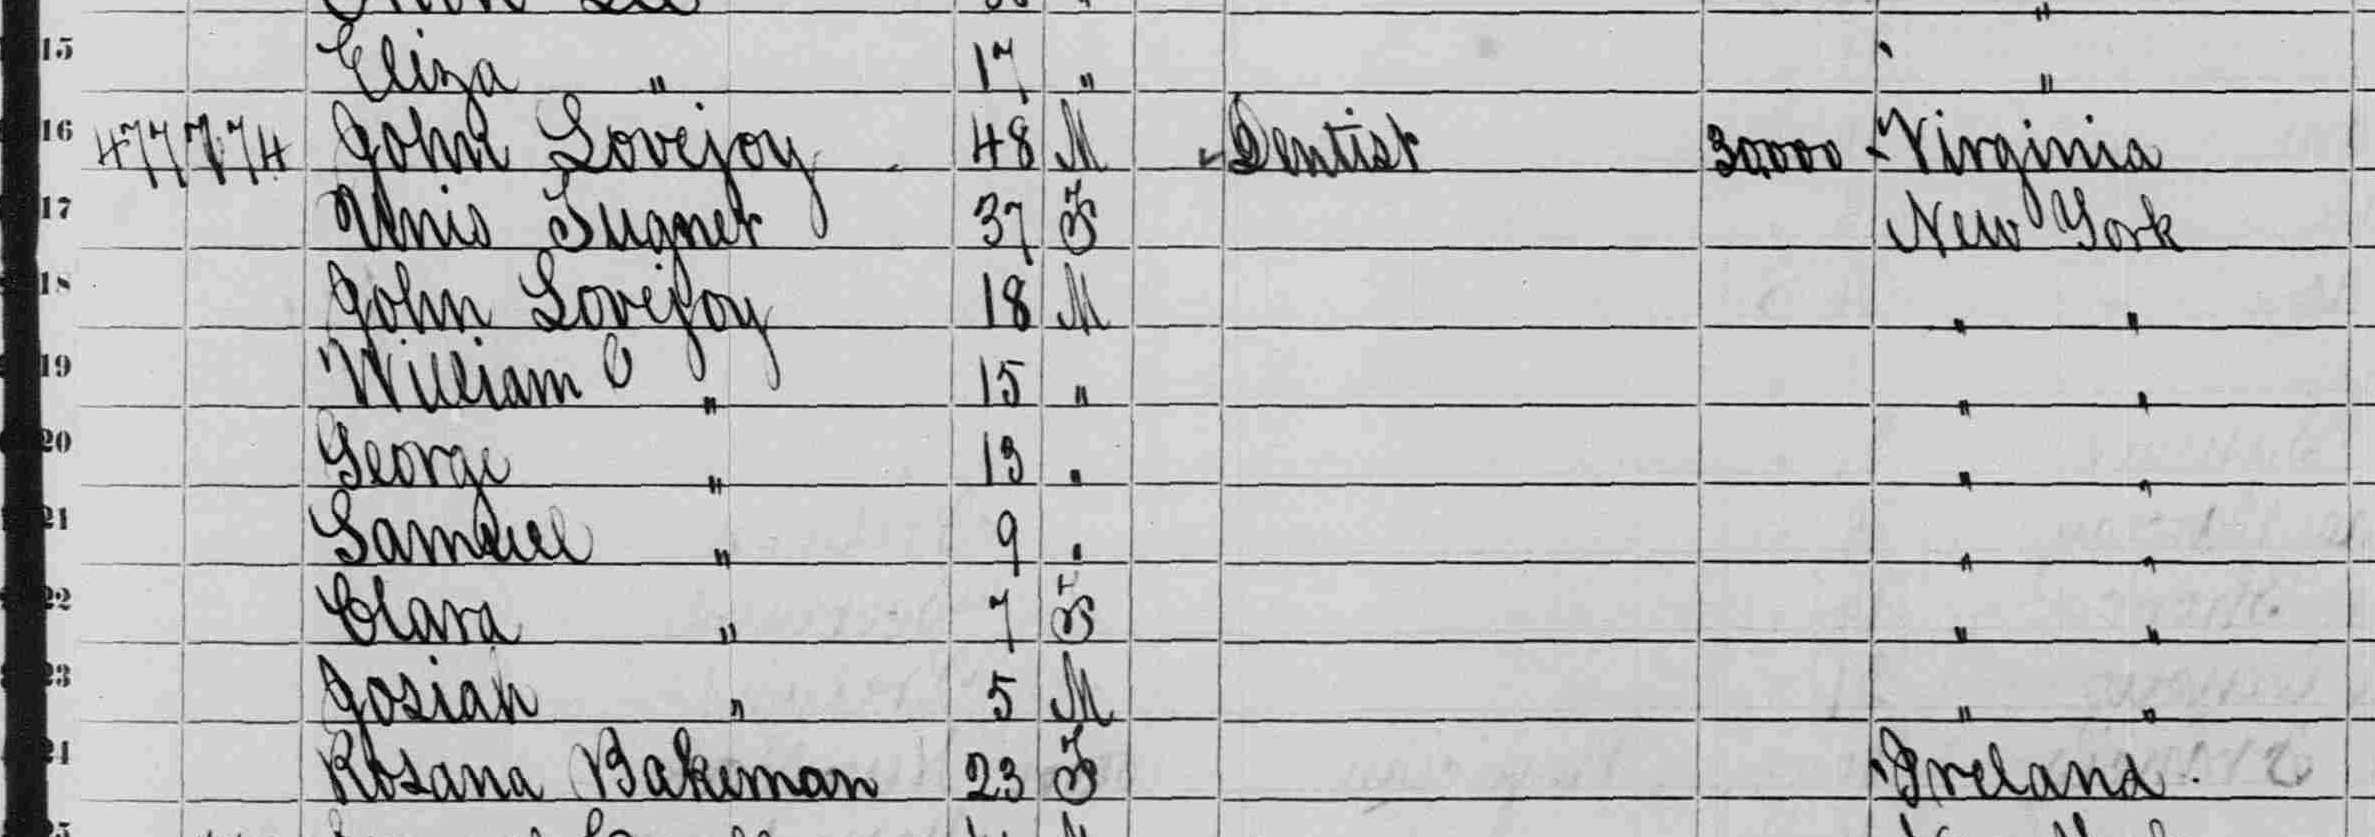 15 Eliza " 17 " "
16 477 774 John Lovejoy 48 M Dentist 30,000 Virginia
17 Unis Tugnet 37 F New York
18 John Lovejoy 18 M " "
19 William " 15 " " "
20 George " 13 " " "
21 Samuel " 9 " " "
22 Clara " 7 F " "
23 Josiah " 5 M " "
24 Rosana Bakeman 23 F Ireland